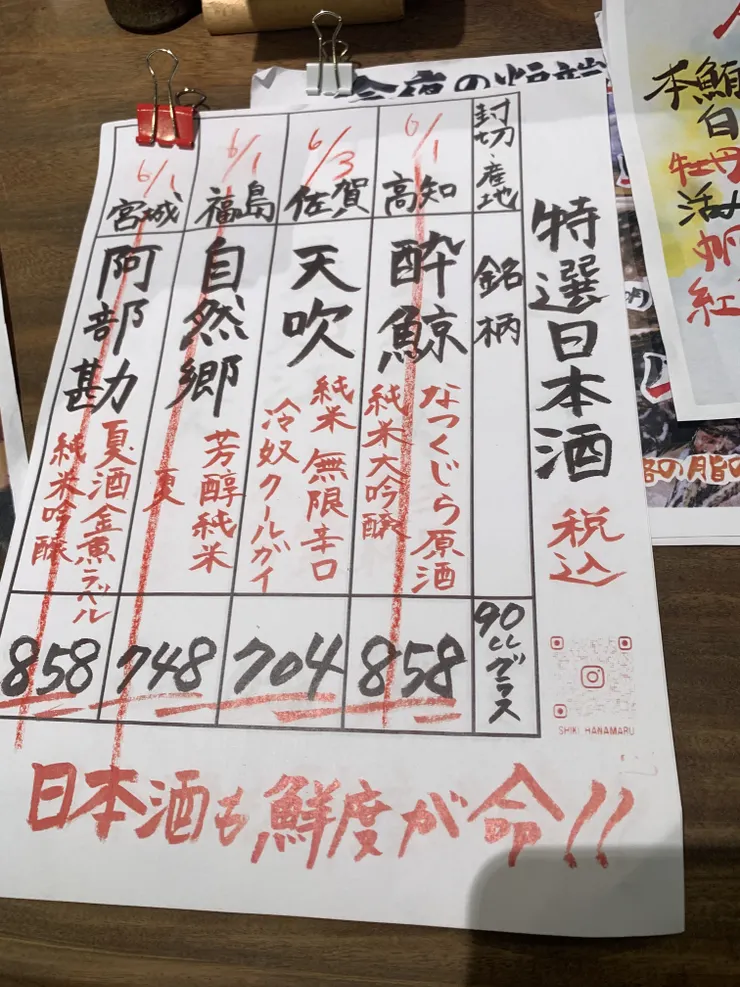 特選日本酒
税込
封切・産地
銘柄
90ccグラス
6/1
高知
酔鯨
なつくじら原酒
純米大吟醸
858
6/3
佐賀
天吹
純米 無限辛口
冷奴クールガイ
704
6/1
福島
自然郷
芳醇純米
夏
748
6/1
宮城
阿部勘
夏酒金魚ラベル
純米吟醸
858
SHIKI HANAMARU
日本酒も鮮度が命!!
本鮪
白
牡丹
活
紅
の脂の